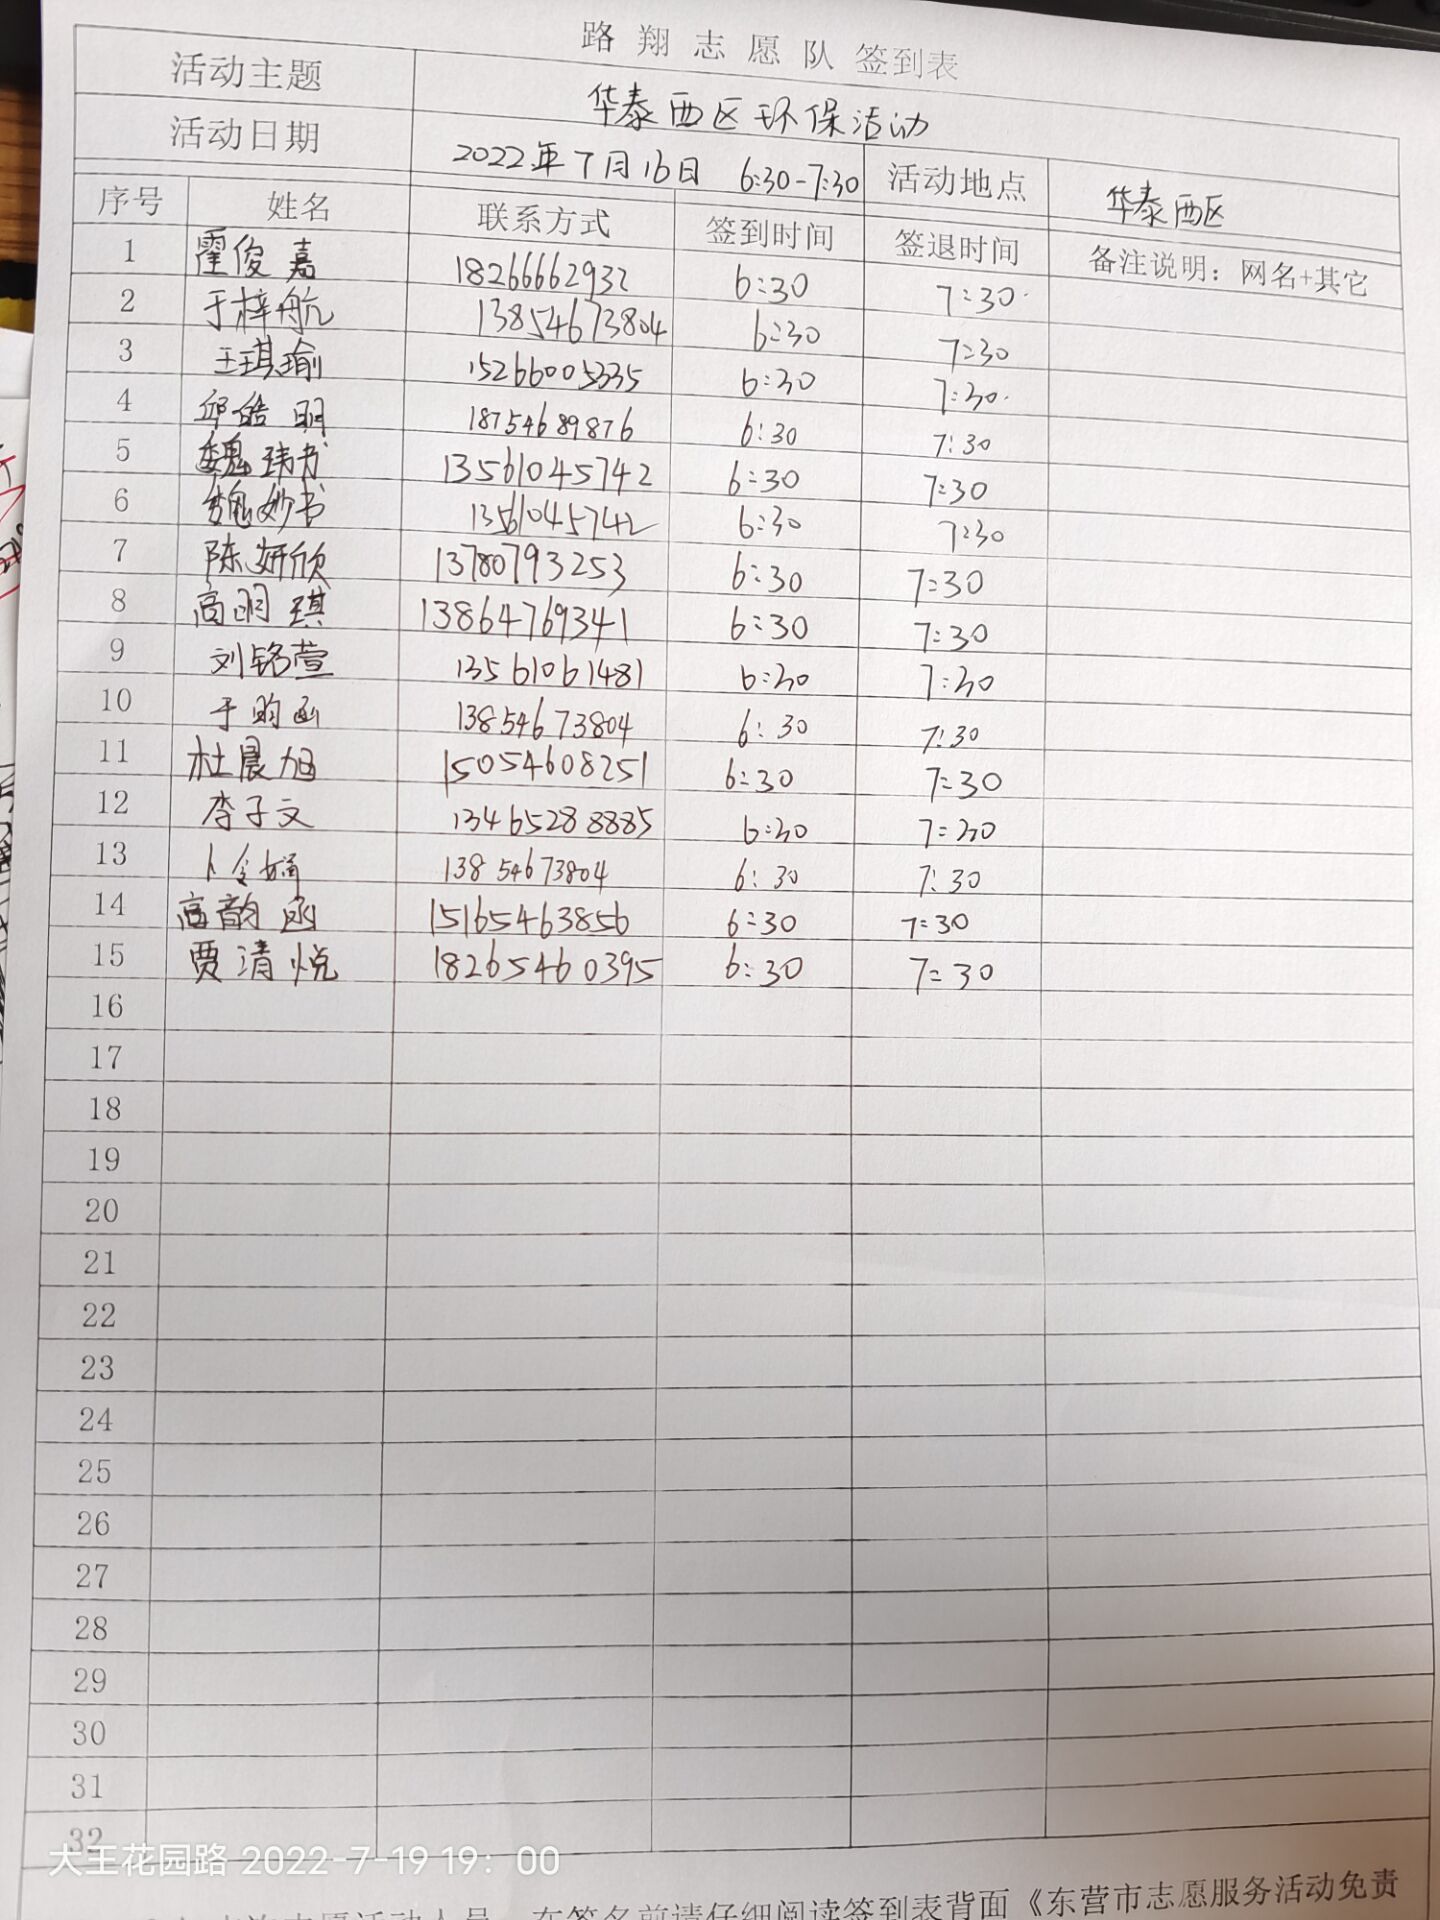 路翔志愿队签到表
活动主题 华泰西区环保活动
活动日期 2022年7月16日 6:30-7:30 活动地点 华泰西区
序号 姓名 联系方式 签到时间 签退时间 备注说明：网名+其它
1 霍俊嘉 18266662932 6:30 7:30
2 于梓航 13854673804 6:30 7:30
3 王琪瑜 15266005335 6:30 7:30
4 邱皓明 18754689876 6:30 7:30
5 魏玮书 13561045742 6:30 7:30
6 魏妙书 13561045742 6:30 7:30
7 陈妍欣 13780793253 6:30 7:30
8 高玥琪 13864769341 6:30 7:30
9 刘铭萱 13561061481 6:30 7:30
10 于昀函 13854673804 6:30 7:30
11 杜晨旭 15054608251 6:30 7:30
12 李子文 13465288885 6:30 7:30
13 卜令 13854673804 6:30 7:30
14 高韵函 15165463856 6:30 7:30
15 贾清悦 18265460395 6:30 7:30
16
17
18
19
20
21
22
23
24
25
26
27
28
29
30
31
32
大王花园路 2022-7-19 19：00
志愿活动人员，在签名前请仔细阅读签到表背面《东营市志愿服务活动免责